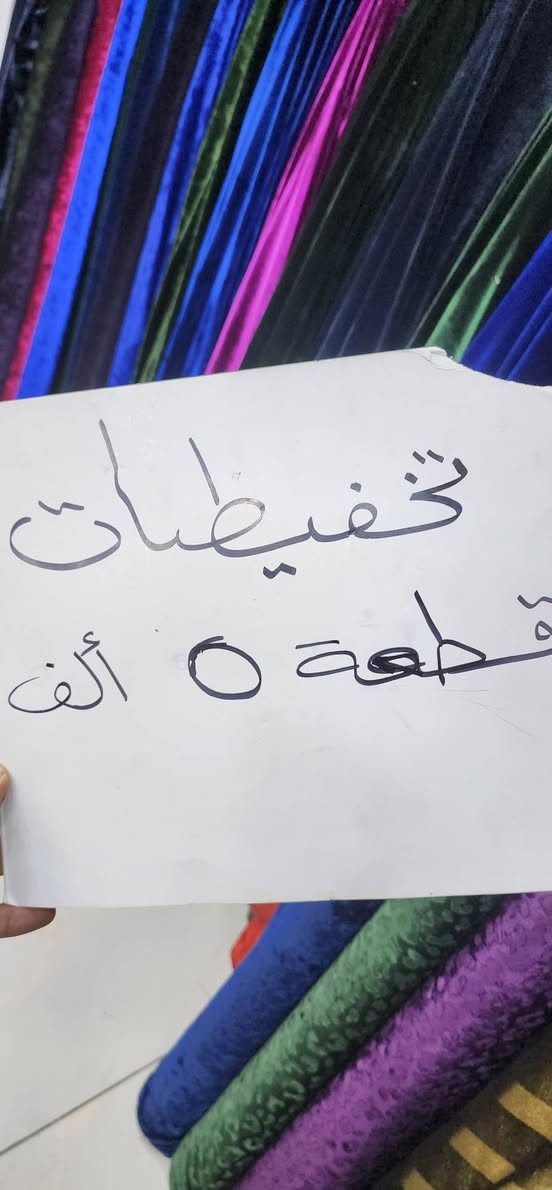 تخفيطات
قطعة ٥ ألف